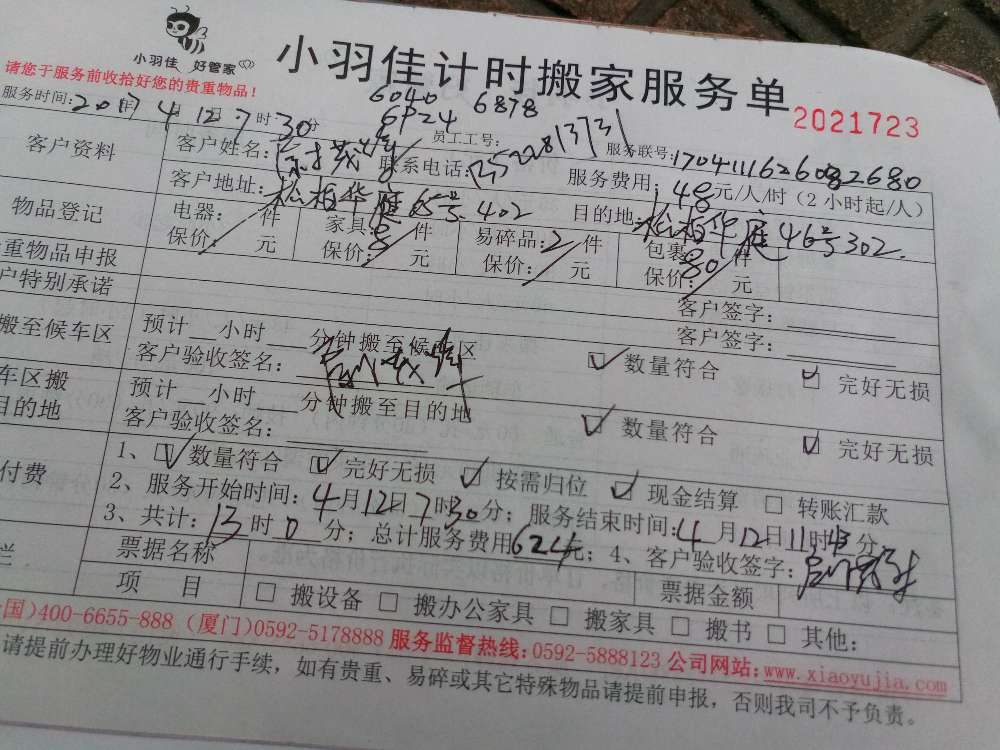 小羽佳 好管家
小羽佳计时搬家服务单
2021723
请您于服务前收拾好您的贵重物品！
6040 6878
服务时间：2017年4月12日7时30分 6P24 员工工号： 服务联号：1704111626082680
客户资料 客户姓名： 联系电话： 服务费用：48元/人/时（2小时起/人）
客户地址：松柏华庭65号402 目的地：松柏华庭46号302.
物品登记 电器： 件 家具：8件 易碎品：2件 包裹：80件
保价： 元 保价： 元 保价： 元 保价： 元
重物品申报 客户签字：
户特别承诺 客户签字：
搬至候车区 预计 小时 分钟搬至候车区
客户验收签名： ☑ 数量符合 ☑ 完好无损
车区搬 预计 小时 分钟搬至目的地
目的地 客户验收签名： ☑ 数量符合 ☑ 完好无损
1、☑ 数量符合 ☑ 完好无损 ☑ 按需归位 ☑ 现金结算 □ 转账汇款
付费 2、服务开始时间：4月12日7时30分；服务结束时间：4月12日11时43分
3、共计：13时0分；总计服务费用624元；4、客户验收签字：
栏 票据名称 票据金额
项 目 □ 搬设备 □ 搬办公家具 □ 搬家具 □ 搬书 □ 其他：
国)400-6655-888 (厦门)0592-5178888 服务监督热线：0592-5888123 公司网站：www.xiaoyujia.com
请提前办理好物业通行手续，如有贵重、易碎或其它特殊物品请提前申报，否则我司不予负责。